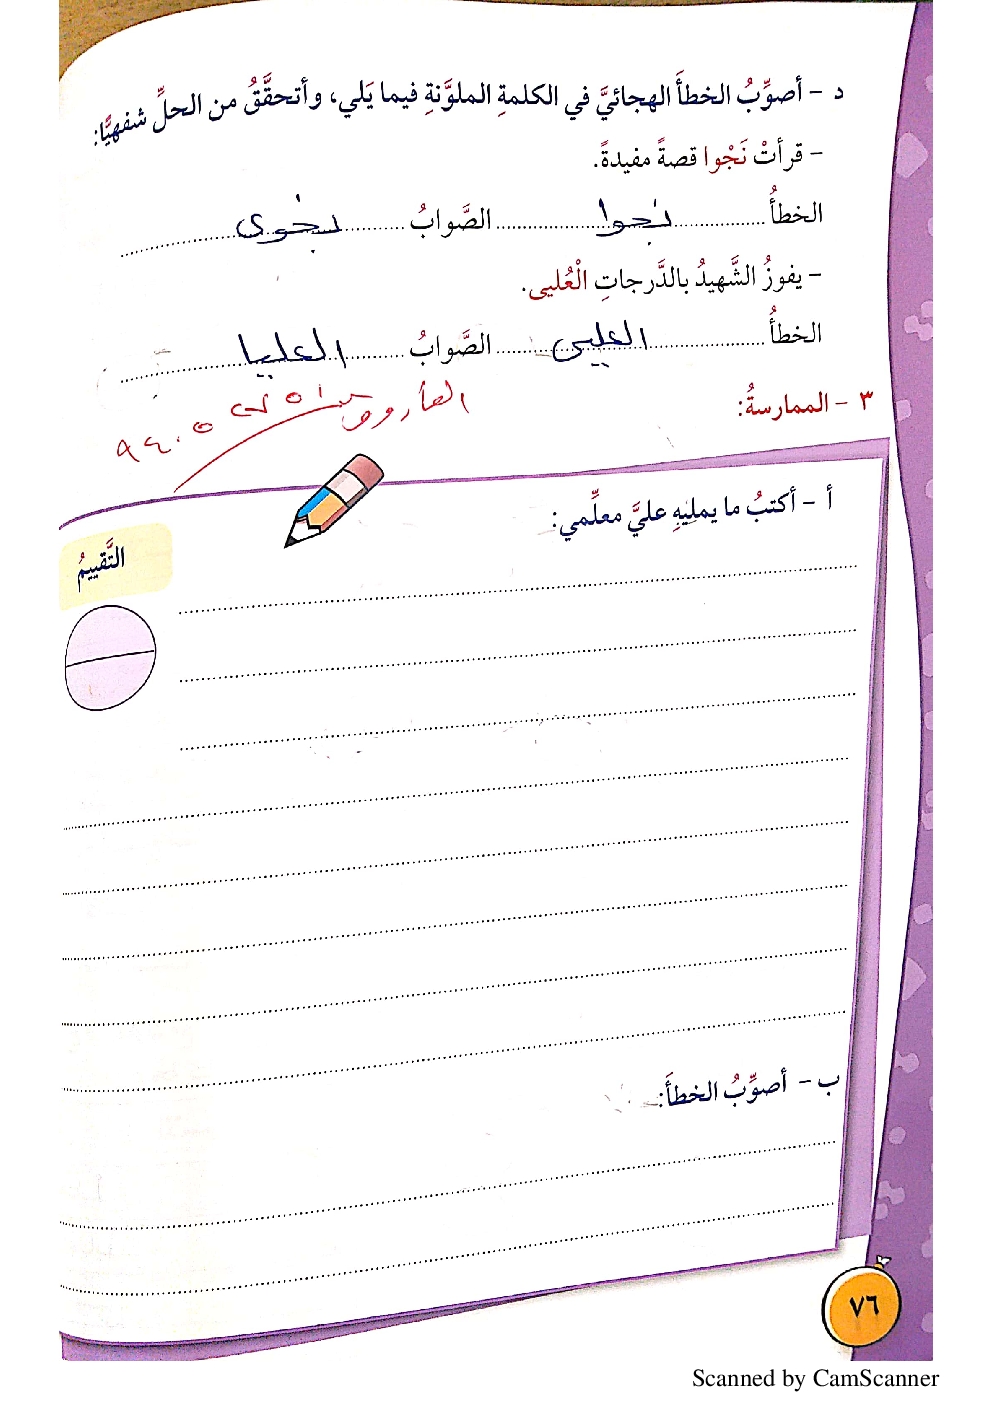 د - أصوِّبُ الخطأَ الهجائيَّ في الكلمةِ الملوَّنةِ فيما يَلي، وأتحقَّقُ من الحلِّ شفهيًّا:
- قرأتْ نَجْوا قصةً مفيدةً.
الخطأُ نجوا الصَّوابُ نجوى
- يفوزُ الشَّهيدُ بالدَّرجاتِ الْعُليى.
الخطأُ العليى الصَّوابُ العليا
٣ - الممارسةُ:
أ - أكتبُ ما يمليهِ عليَّ معلِّمي:
التَّقييمُ
ب - أصوِّبُ الخطأَ:
٧٦
Scanned by CamScanner